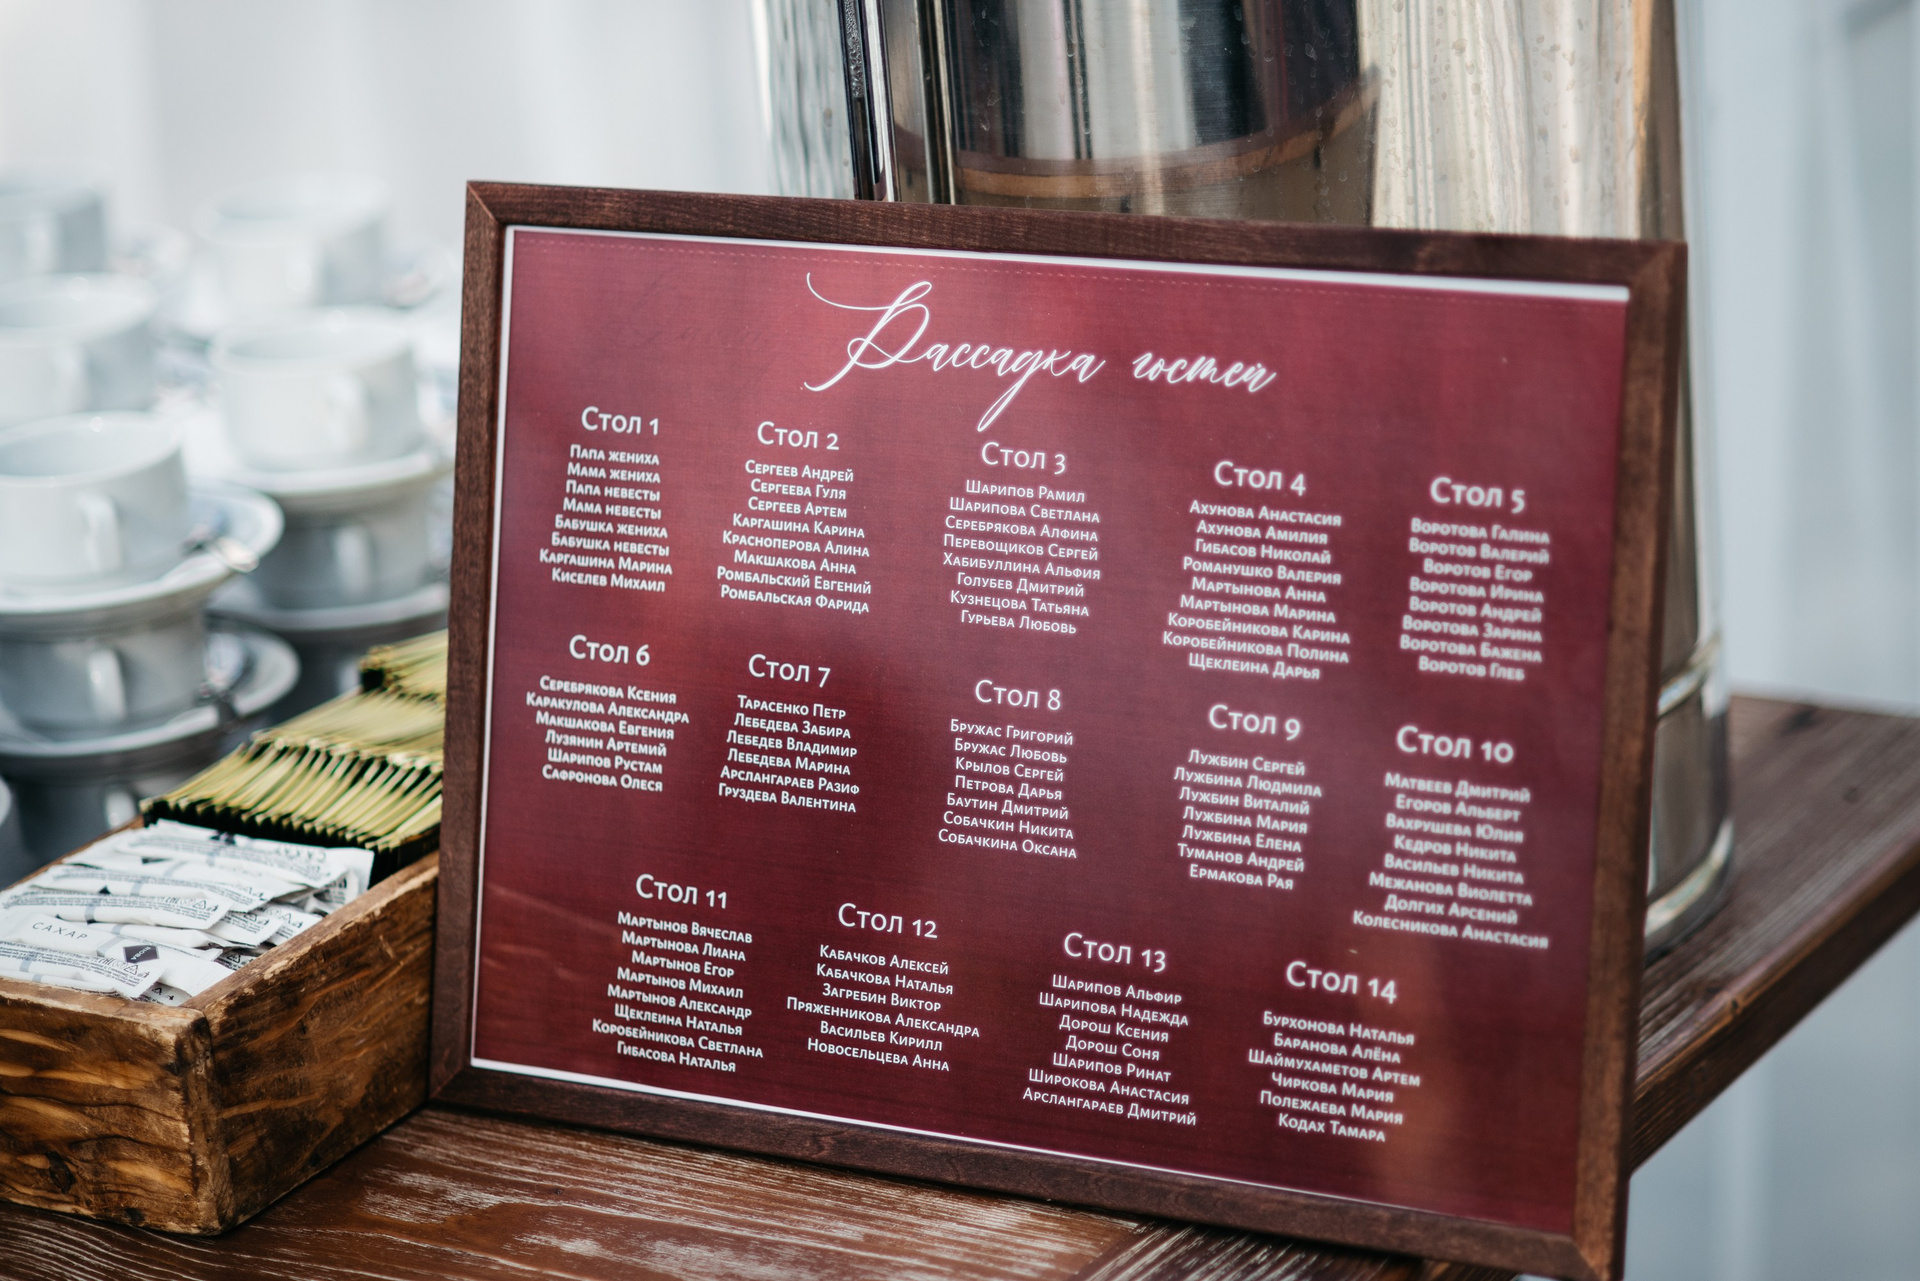 Рассадка гостей
Стол 1
Папа жениха
Мама жениха
Папа невесты
Мама невесты
Бабушка жениха
Бабушка невесты
Каргашина Марина
Киселев Михаил
Стол 2
Сергеев Андрей
Сергеева Гуля
Сергеев Артем
Каргашина Карина
Красноперова Алина
Макшакова Анна
Ромбальский Евгений
Ромбальская Фарида
Стол 3
Шарипов Рамил
Шарипова Светлана
Серебрякова Алфина
Перевощиков Сергей
Хабибуллина Альфия
Голубев Дмитрий
Кузнецова Татьяна
Гурьева Любовь
Стол 4
Ахунова Анастасия
Ахунова Амилия
Гибасов Николай
Романушко Валерия
Мартынова Анна
Мартынова Марина
Коробейникова Карина
Коробейникова Полина
Щеклеина Дарья
Стол 5
Воротова Галина
Воротов Валерий
Воротов Егор
Воротова Ирина
Воротов Андрей
Воротова Зарина
Воротова Бажена
Воротов Глеб
Стол 6
Серебрякова Ксения
Каракулова Александра
Макшакова Евгения
Лузянин Артемий
Шарипов Рустам
Сафронова Олеся
Стол 7
Тарасенко Петр
Лебедева Забира
Лебедев Владимир
Лебедева Марина
Арслангараев Разиф
Груздева Валентина
Стол 8
Бружас Григорий
Бружас Любовь
Крылов Сергей
Петрова Дарья
Баутин Дмитрий
Собачкин Никита
Собачкина Оксана
Стол 9
Лужбин Сергей
Лужбина Людмила
Лужбин Виталий
Лужбина Мария
Лужбина Елена
Туманов Андрей
Ермакова Рая
Стол 10
Матвеев Дмитрий
Егоров Альберт
Вахрушева Юлия
Кедров Никита
Васильев Никита
Межанова Виолетта
Долгих Арсений
Колесникова Анастасия
Стол 11
Мартынов Вячеслав
Мартынова Лиана
Мартынов Егор
Мартынов Михаил
Мартынов Александр
Щеклеина Наталья
Коробейникова Светлана
Гибасова Наталья
Стол 12
Кабачков Алексей
Кабачкова Наталья
Загребин Виктор
Пряженникова Александра
Васильев Кирилл
Новосельцева Анна
Стол 13
Шарипов Альфир
Шарипова Надежда
Дорош Ксения
Дорош Соня
Шарипов Ринат
Широкова Анастасия
Арслангараев Дмитрий
Стол 14
Бурхонова Наталья
Баранова Алёна
Шаймухаметов Артем
Чиркова Мария
Полежаева Мария
Кодах Тамара
САХАР